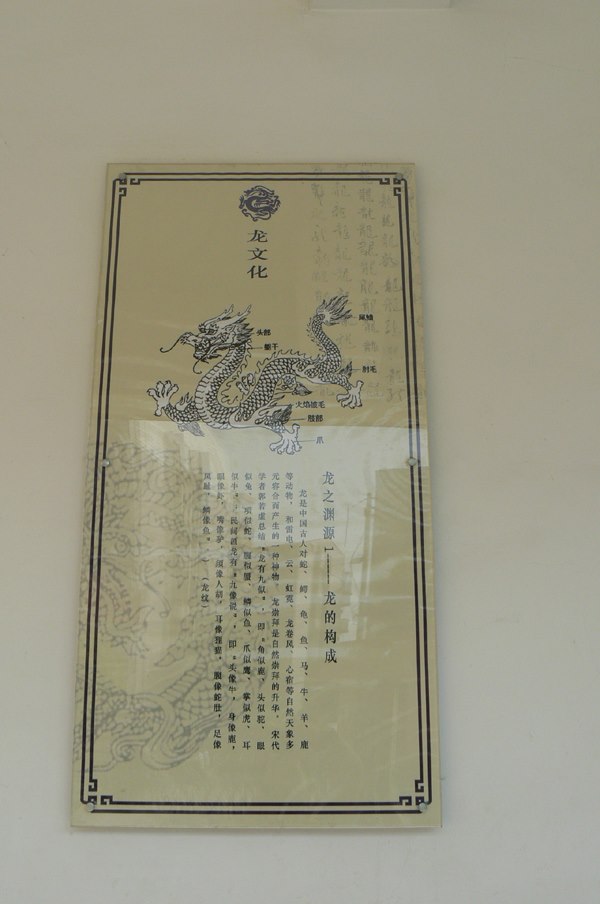 龙文化
头部
躯干
尾鳍
肘毛
火焰披毛
股部
爪
龙之渊源1——龙的构成
龙是中国古人对蛇、鳄、龟、鱼、马、牛、羊、鹿
等动物，和雷电、云、虹霓、龙卷风、心宿等自然天象多
元容合而产生的一种神物。龙崇拜是自然崇拜的升华，宋代
学者郭若虚总结"龙有九似"，即"角似鹿、头似驼、眼
似兔、项似蛇、腹似蜃、鳞似鱼、爪似鹰、掌似虎、耳
似牛"；民间匠龙有"九像说"，即"头像牛，身像鹿，
眼像虾，嘴像驴，须像人胡，耳像狸猫，腹像蛇肚，足像
凤趾，鳞像鱼"。（龙纹）